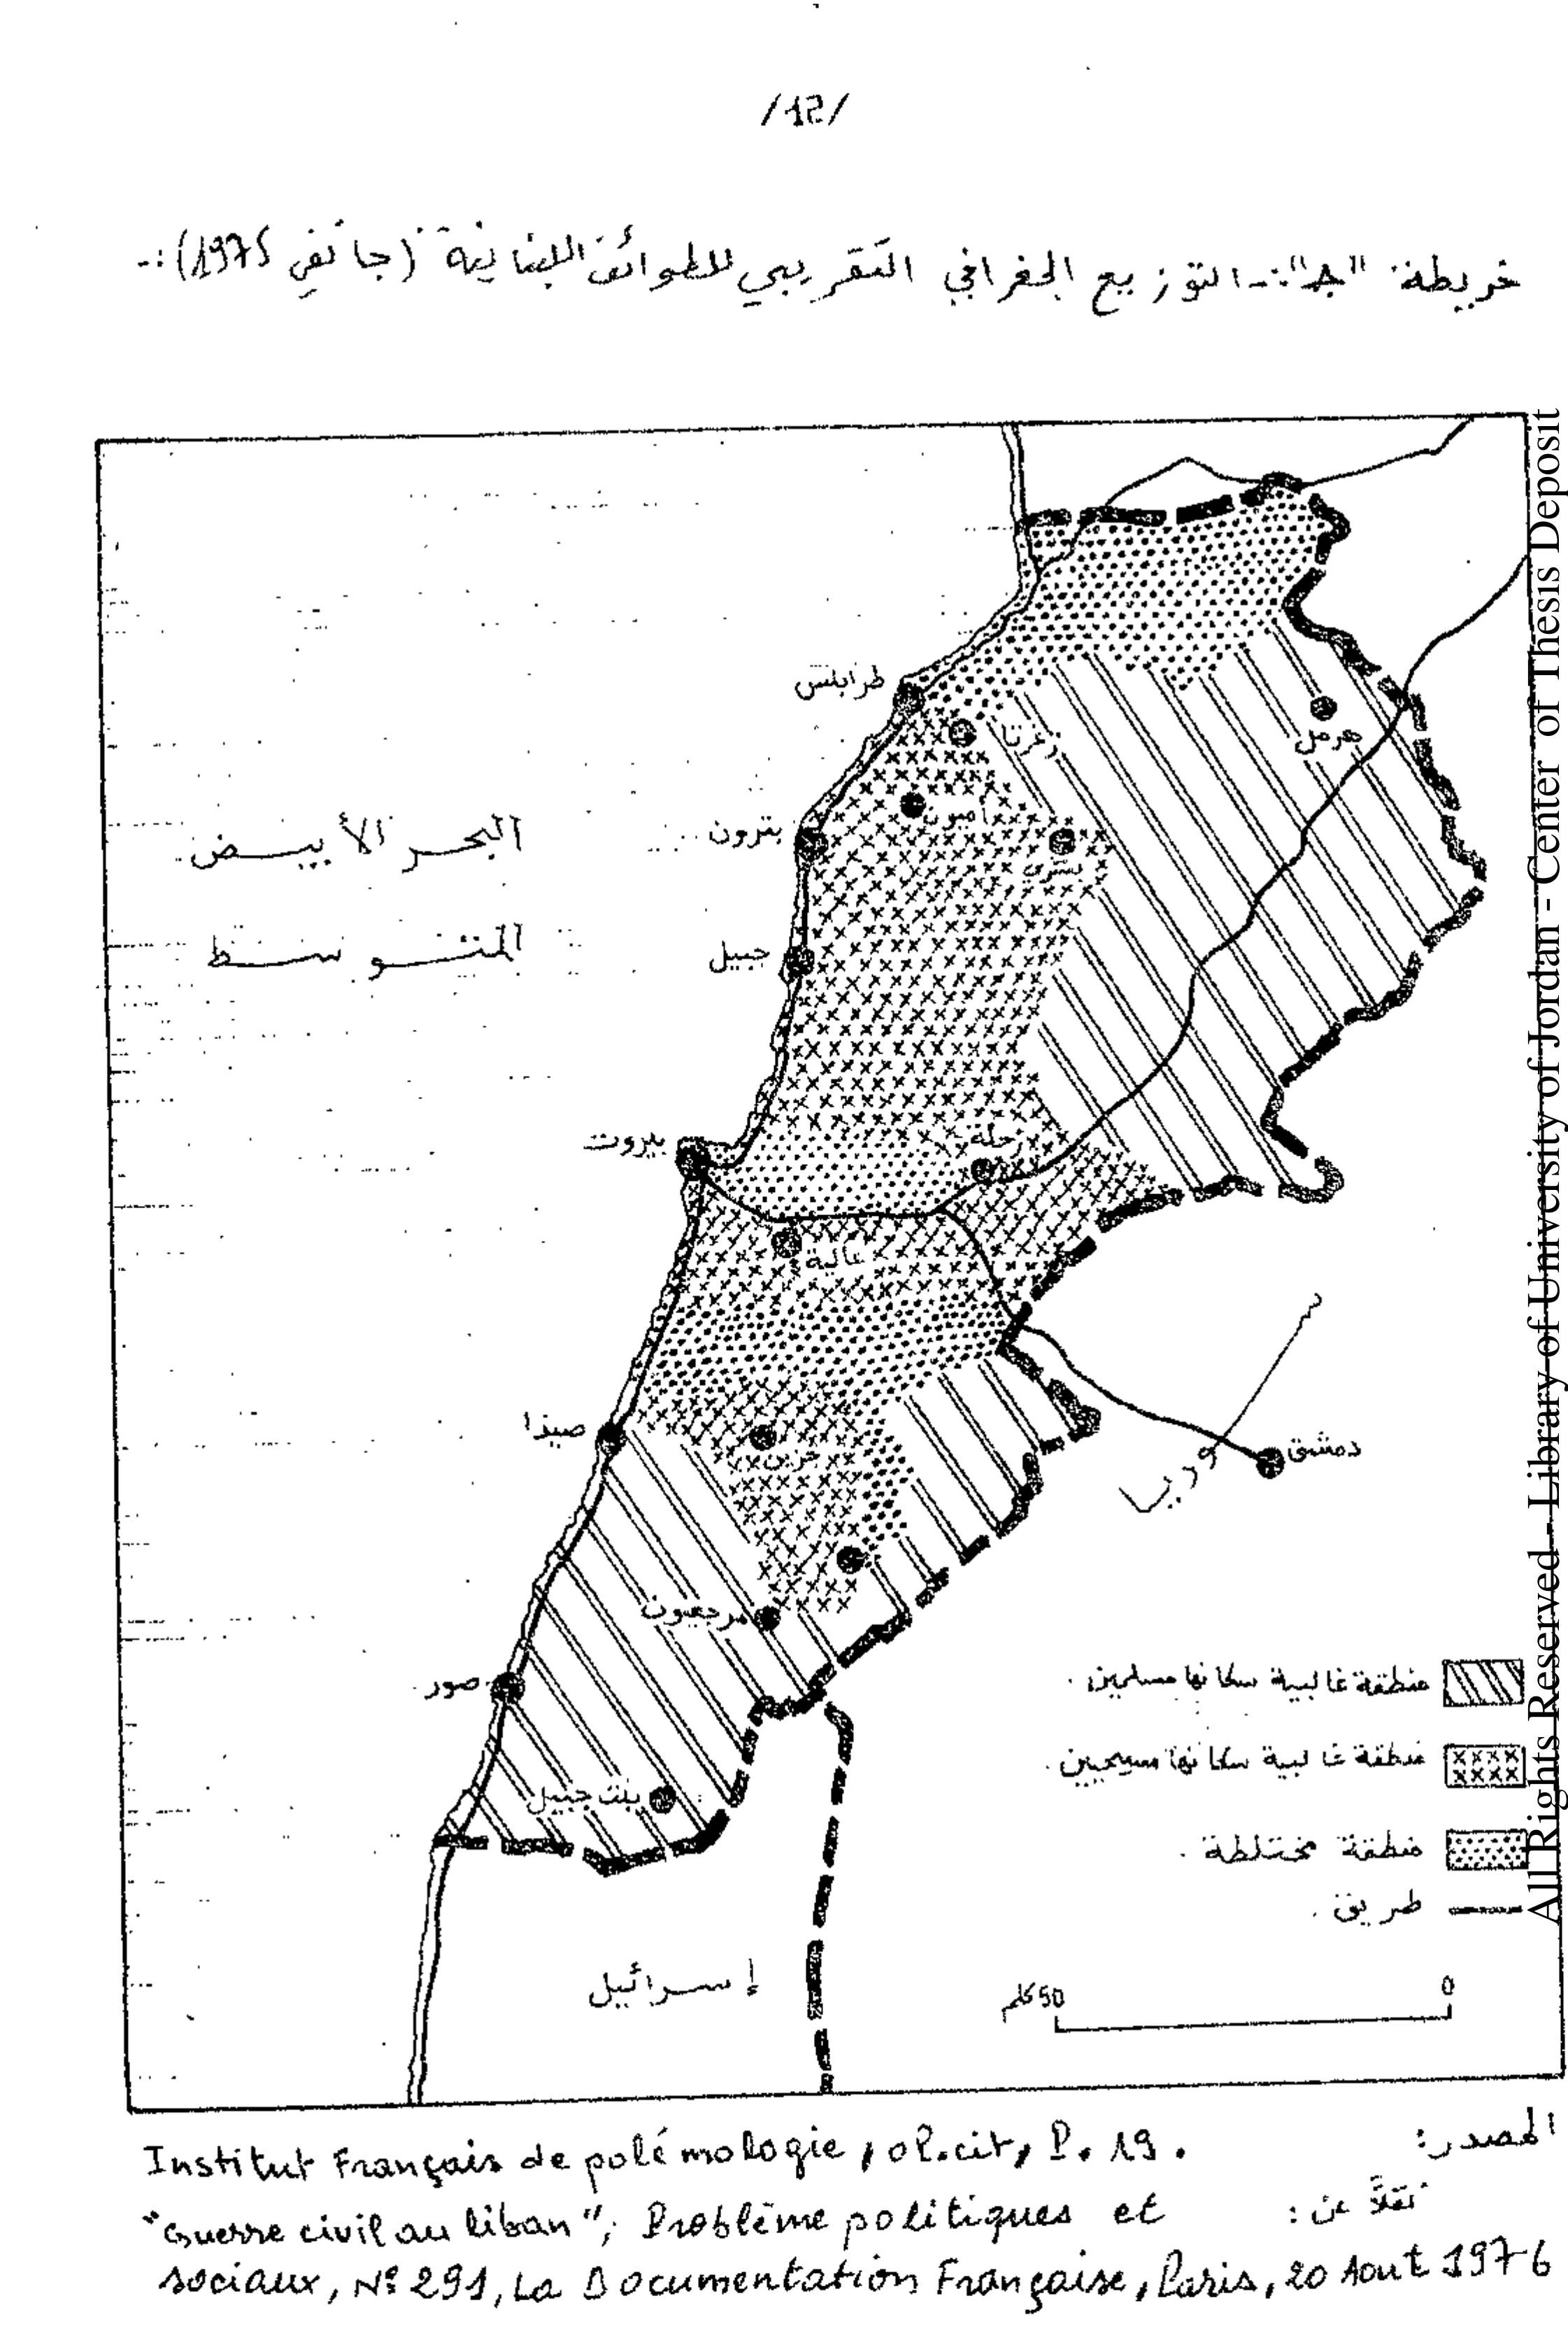 /12/
خريطة "جـ":- التوزيع الجغرافي التقريبي للطوائف اللبنانية (جانفي 1975):-
طرابلس
هرمل
زغرتا
أميون
بترون
بشري
البحر الأبيـض
المتـوسـط
جبيل
بيروت
زحلة
عالية
صيدا
جزين
دمشق
سوريا
مرجعيون
صور
بنت جبيل
إسرائيل
منطقة غالبية سكانها مسلمين.
منطقة غالبية سكانها مسيحيين.
منطقة مختلطة.
طريق.
0
50 كلم
المصدر: Institut Français de polémologie, op.cit, P. 19.
نقلاً عن: "Guerre civil au liban", Problème politiques et
sociaux, Nº 291, La Documentation Française, Paris, 20 Aout 1976
All Rights Reserved - Library of University of Jordan - Center of Thesis Deposit